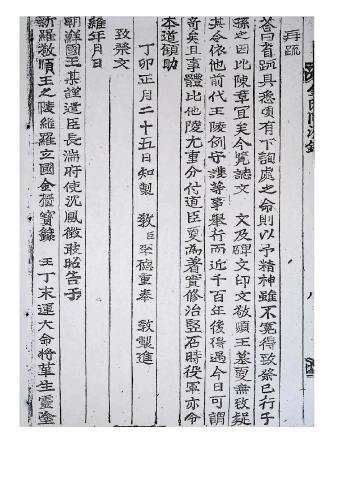 再疏
答曰省疏具悉頃有下詢處之命則以予精神雖不寃得致祭已行予
孫之因此陳章宜矣今覧誌文 文及碑文印文敬順王墓夏無致疑
其令依他前代王陵例守護等事舉行而近千百年後得遇今日可謂
斬矣且事體比他陵尤重分付道臣夏為着實修治竪石時役軍亦令
本道顧助
丁卯正月二十五日知製 教臣梁德重奉 教製進
致祭文
維年月日
朝鮮國王某謹遣臣長湍府使沈鳳徵敢昭告于
新羅敬順王之陵維羅立國金櫃寶籙 王丁末運大命將革生靈塗